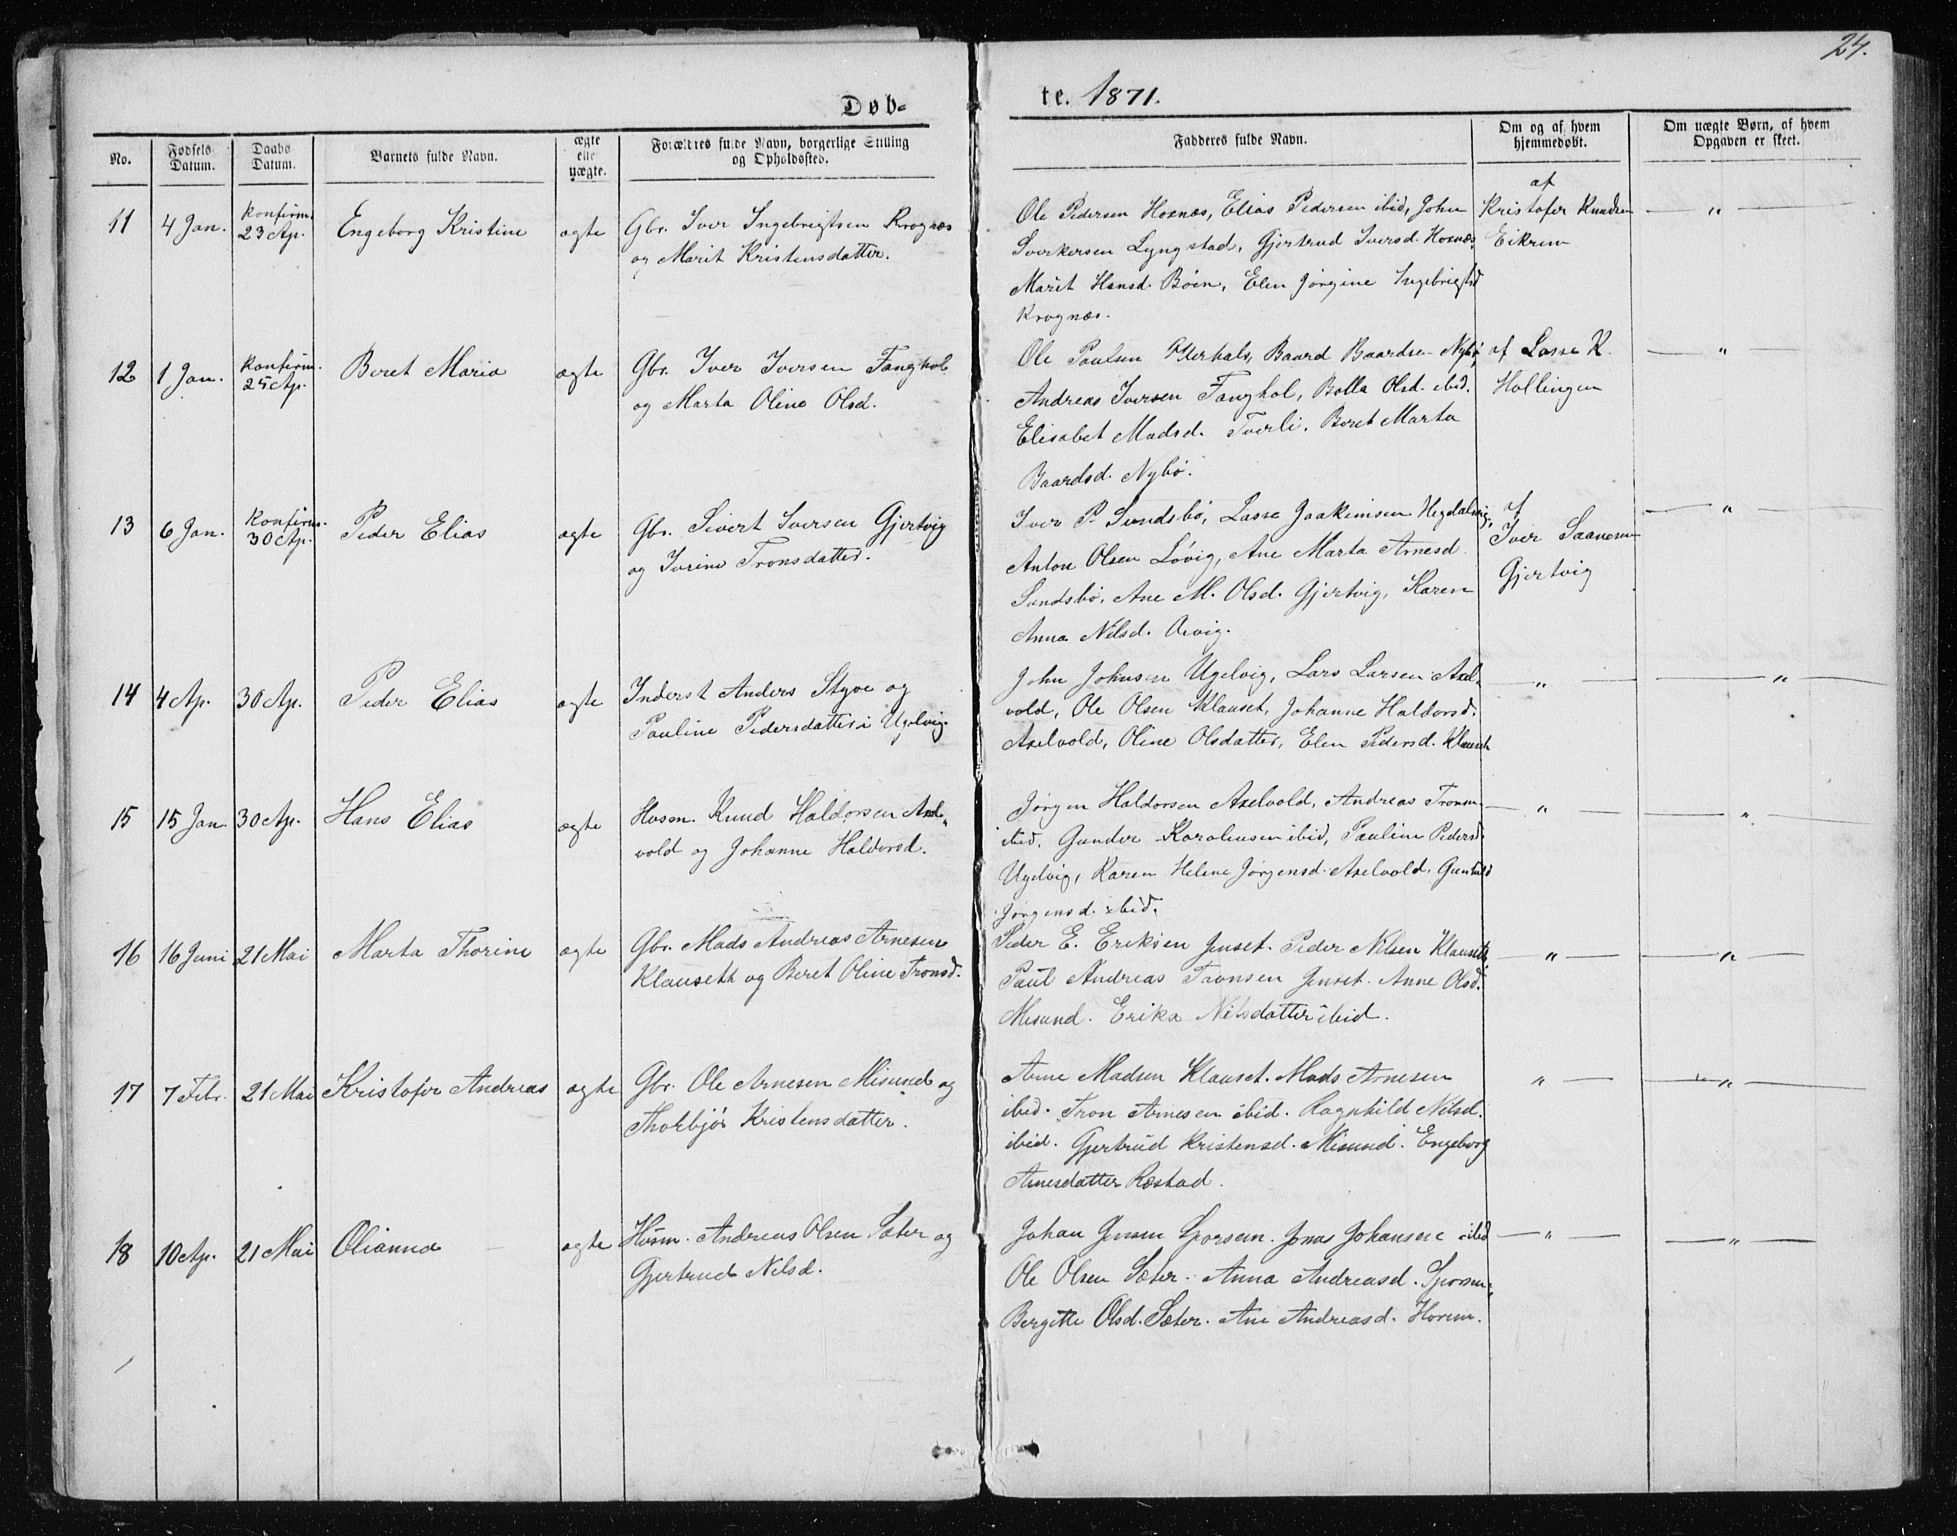 24.
Døb- te. 1871.
No. Fødsels Datum. Daabs Datum. Barnets fulde Navn. ægte elle uægte. Forældres fulde Navn, borgerlige Stilling og Opholdssted. Fadderes fulde Navn. Om og af hvem hjemmedøbt. Om uægte Børn, af hvem Opgaven er skeet.
11 4 Jan. Konfirm. 23 Ap. Engeborg Kristine ægte Gbr. Iver Ingebrigtsen Krognæs
og Marit Kristensdatter.
Ole Pedersen Hosnæs, Elias Pedersen ibid, John
Sverkersen Lyngstad, Gjertrud Iversd. Hosnæs
Marit Hansd. Böen, Elen Jørgine Ingebrigtsd
Krognæs.
af
Kristofer Knudsen
Eikrem
— " —
12 1 Jan. Konfirm. 25 Ap. Beret Maria ægte Gbr. Iver Iversen Fanghol
og Marta Oline Olsd.
Ole Paulsen Ytterhals, Baard Baardsen Nybø,
Andreas Iversen Fanghol, Bolla Olsd. ibid.
Elisabet Madsd. Tverli, Beret Marta
Baardsd. Nybø.
af Lasse K.
Hollingen
— " —
13 6 Jan. Konfirm. 30 Ap. Peder Elias ægte Gbr. Sivert Iversen Gjertvig
og Iverine Tronsdatter.
Iver P. Sundsbø, Lasse Joakimsen Hegdalvig,
Anton Olsen Løvig, Ane Marta Arnesd.
Sundsbø, Ane M. Olsd. Gjertvig, Karen
Anna Nilsd. Arvig.
af
Iver
Gjertvig
— " —
14 4 Ap. 30 Ap. Peder Elias ægte Inderst Anders Styve og
Pauline Pedersdatter i Ugelvig.
John Johnsen Ugelvig, Lars Larsen Axel-
vold, Ole Olsen Klauset, Johanne Haldorsd.
Axelvold, Oline Olsdatter, Elen Pedersd. Klauset
— " —
— " —
15 15 Jan. 30 Ap. Hans Elias ægte Husm. Knud Haldorsen Axel-
vold og Johanne Haldorsd.
Jørgen Haldorsen Axelvold, Andreas Tronsen
ibid. Gunder Karolinsen ibid, Pauline Pedersd.
Ugelvig, Karen Helene Jørgensd. Axelvold. Gunhild
Jørgensd. ibid.
— " —
— " —
16 16 Juni 21 Mai Marta Thorine ægte Gbr. Mads Andreas Arnesen
Klausett og Beret Oline Tronsd.
Peder E. Eriksen Jenset. Peder Nilsen Klausett,
Paul Andreas Tronsen Jenset. Anne Olsd.
Misund. Erika Nilsdatter ibid.
— " —
— " —
17 7 Febr. 21 Mai Kristofer Andreas ægte Gbr. Ole Arnesen Misund og
Thorbjør Kristensdatter.
Arne Madsen Klauset. Mads Arnesen
ibid. Tron Arnesen ibid. Ragnhild Nilsd.
ibid. Gjertrud Kristensd. Misund. Engeborg
Arnesdatter Røstad.
" —
— " —
18 10 Ap. 21 Mai Olianna ægte Husm. Andreas Olsen Sæter og
Gjertrud Nilsd.
Johan Jensen Sporsem. Jonas Johansen ibid
Ole Olsen Sæter. Anna Andreasd. Sporsem,
Bergitte Olsd. Sæter. Ane Andreasd. Horem.
— " —
— " —